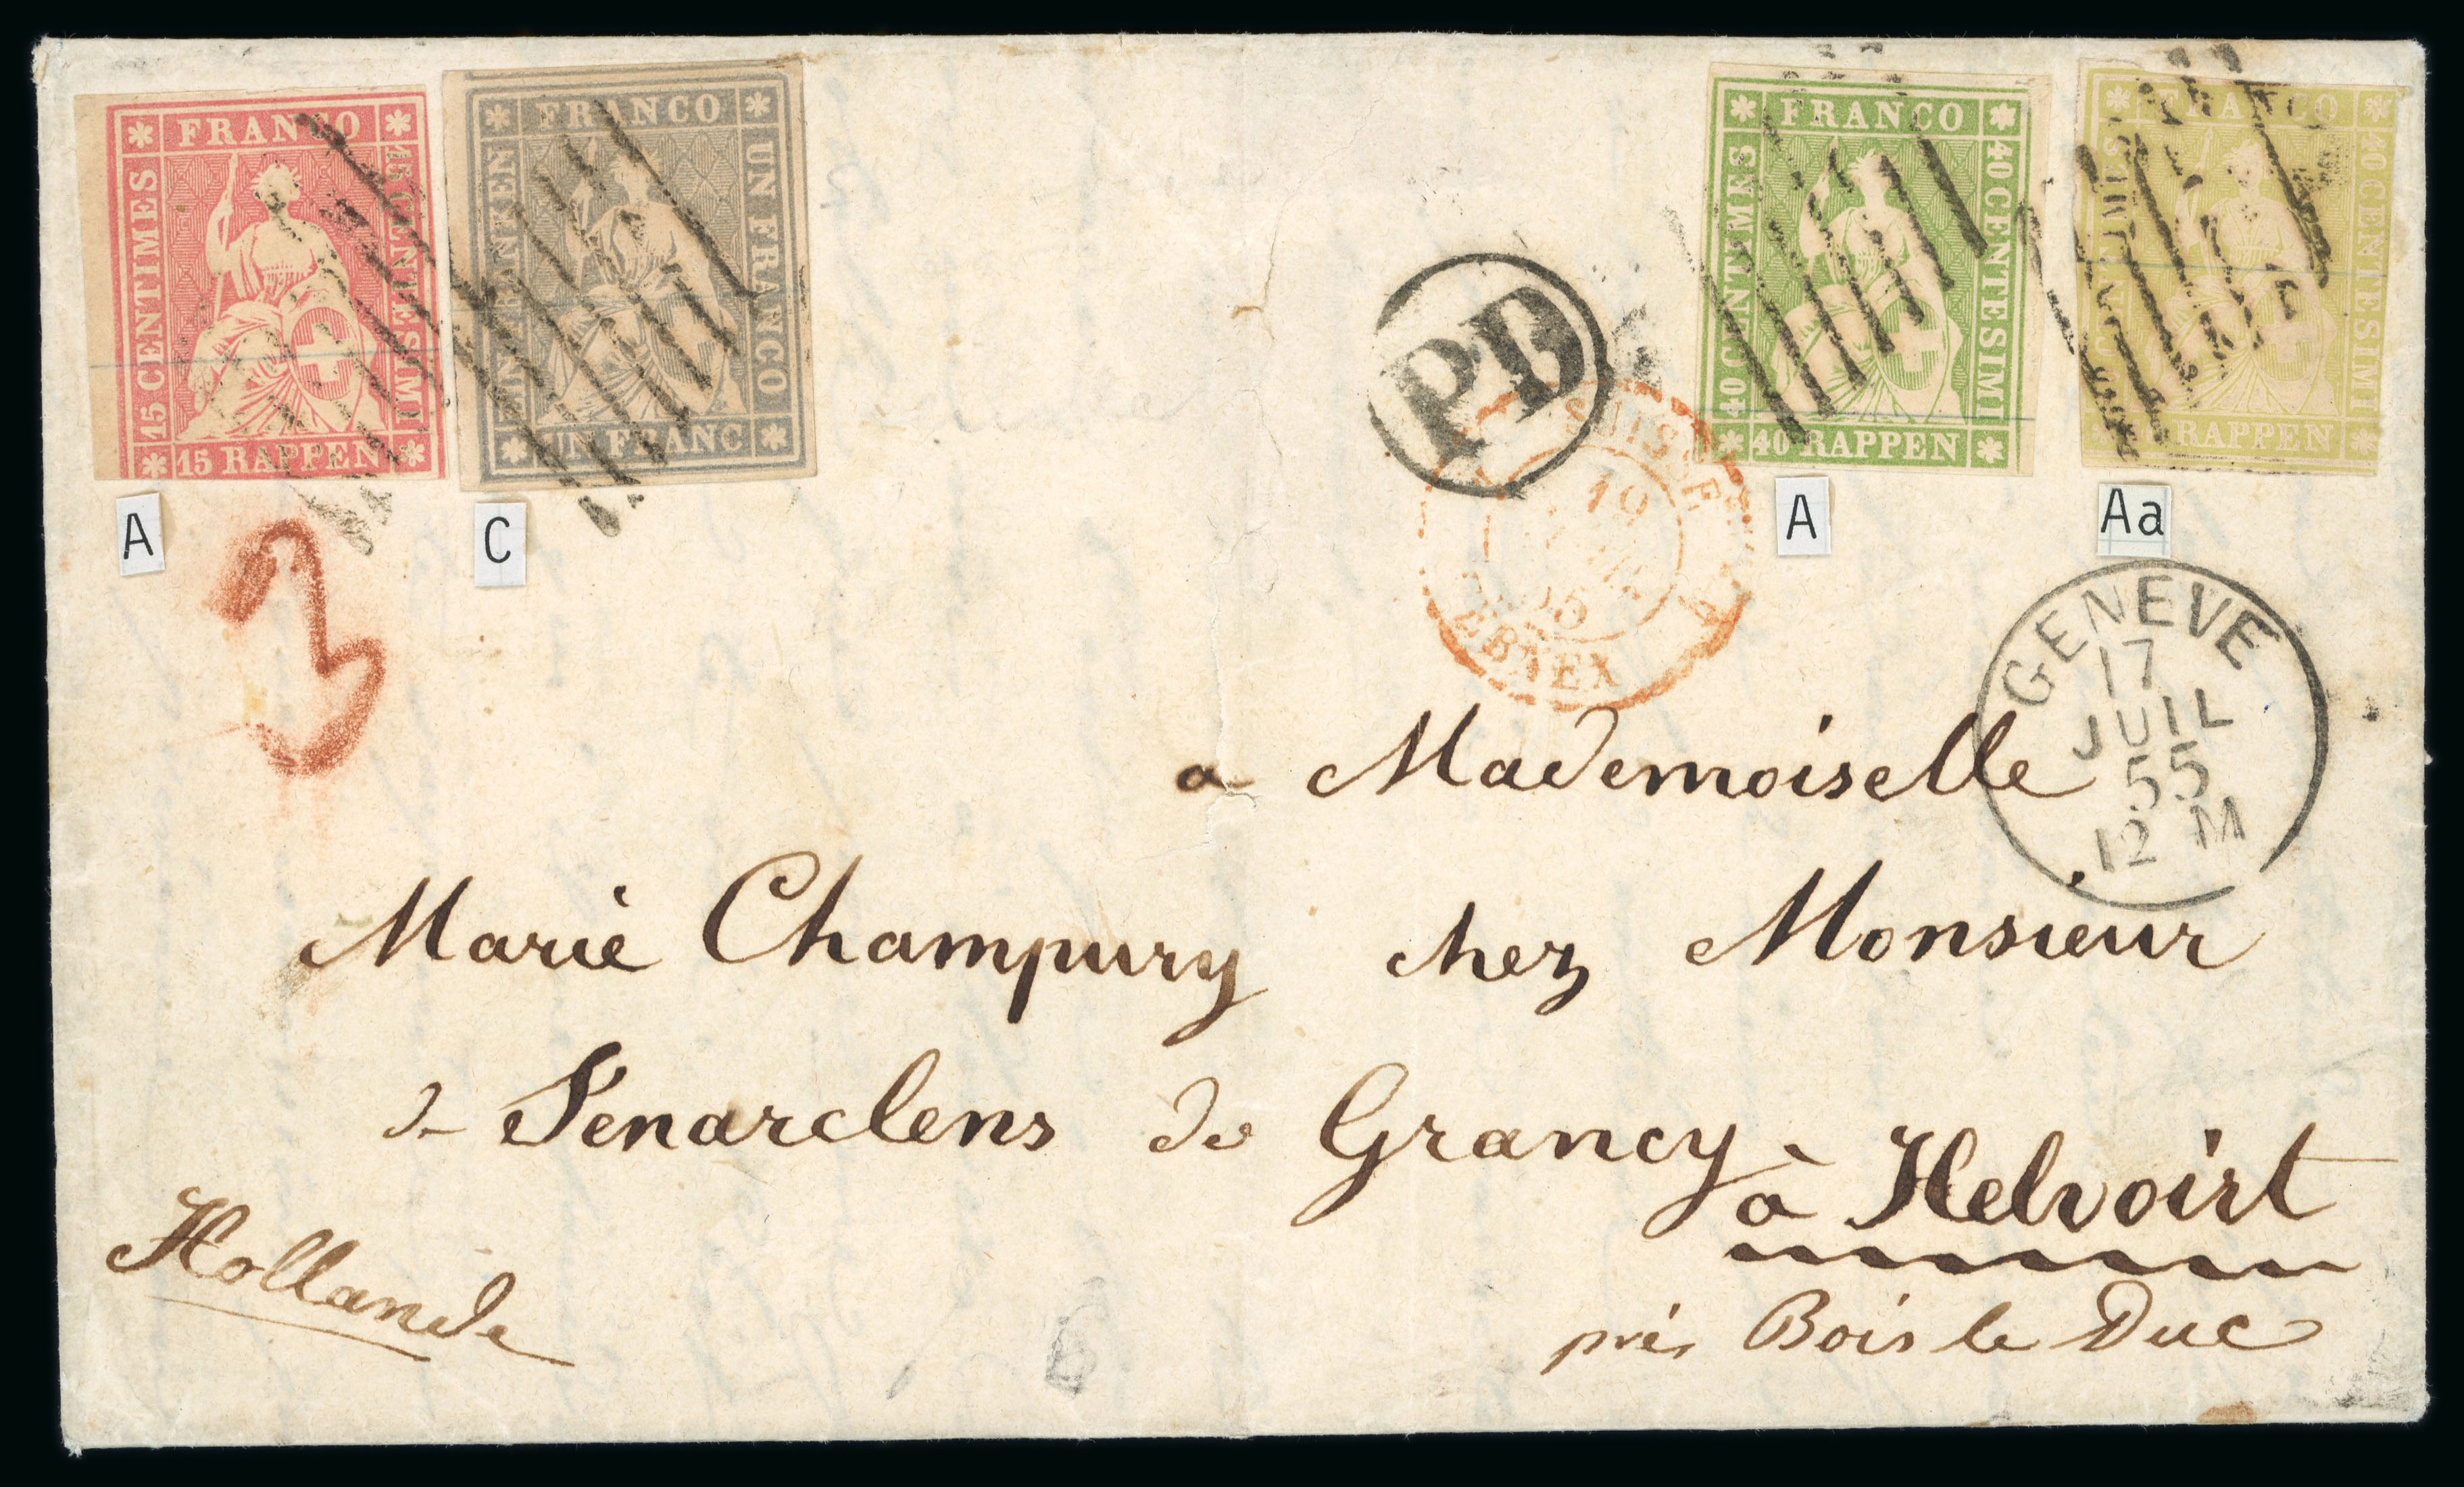 FRANCO
15 CENTIMES
15 CENTESIMI
15 RAPPEN
FRANCO
EIN FRANKEN
UN FRANCO
UN FRANC
FRANCO
40 CENTIMES
40 CENTESIMI
40 RAPPEN
FRANCO
40 CENTESIMI
RAPPEN
A
C
A
Aa
3
PD
SUISSE
19
55
GENEVE
17
JUIL
55
12 M
a Mademoiselle
Marie Champury chez Monsieur
de Senarclens de Grancy
à Helvoirt
près Bois le Duc
Hollande